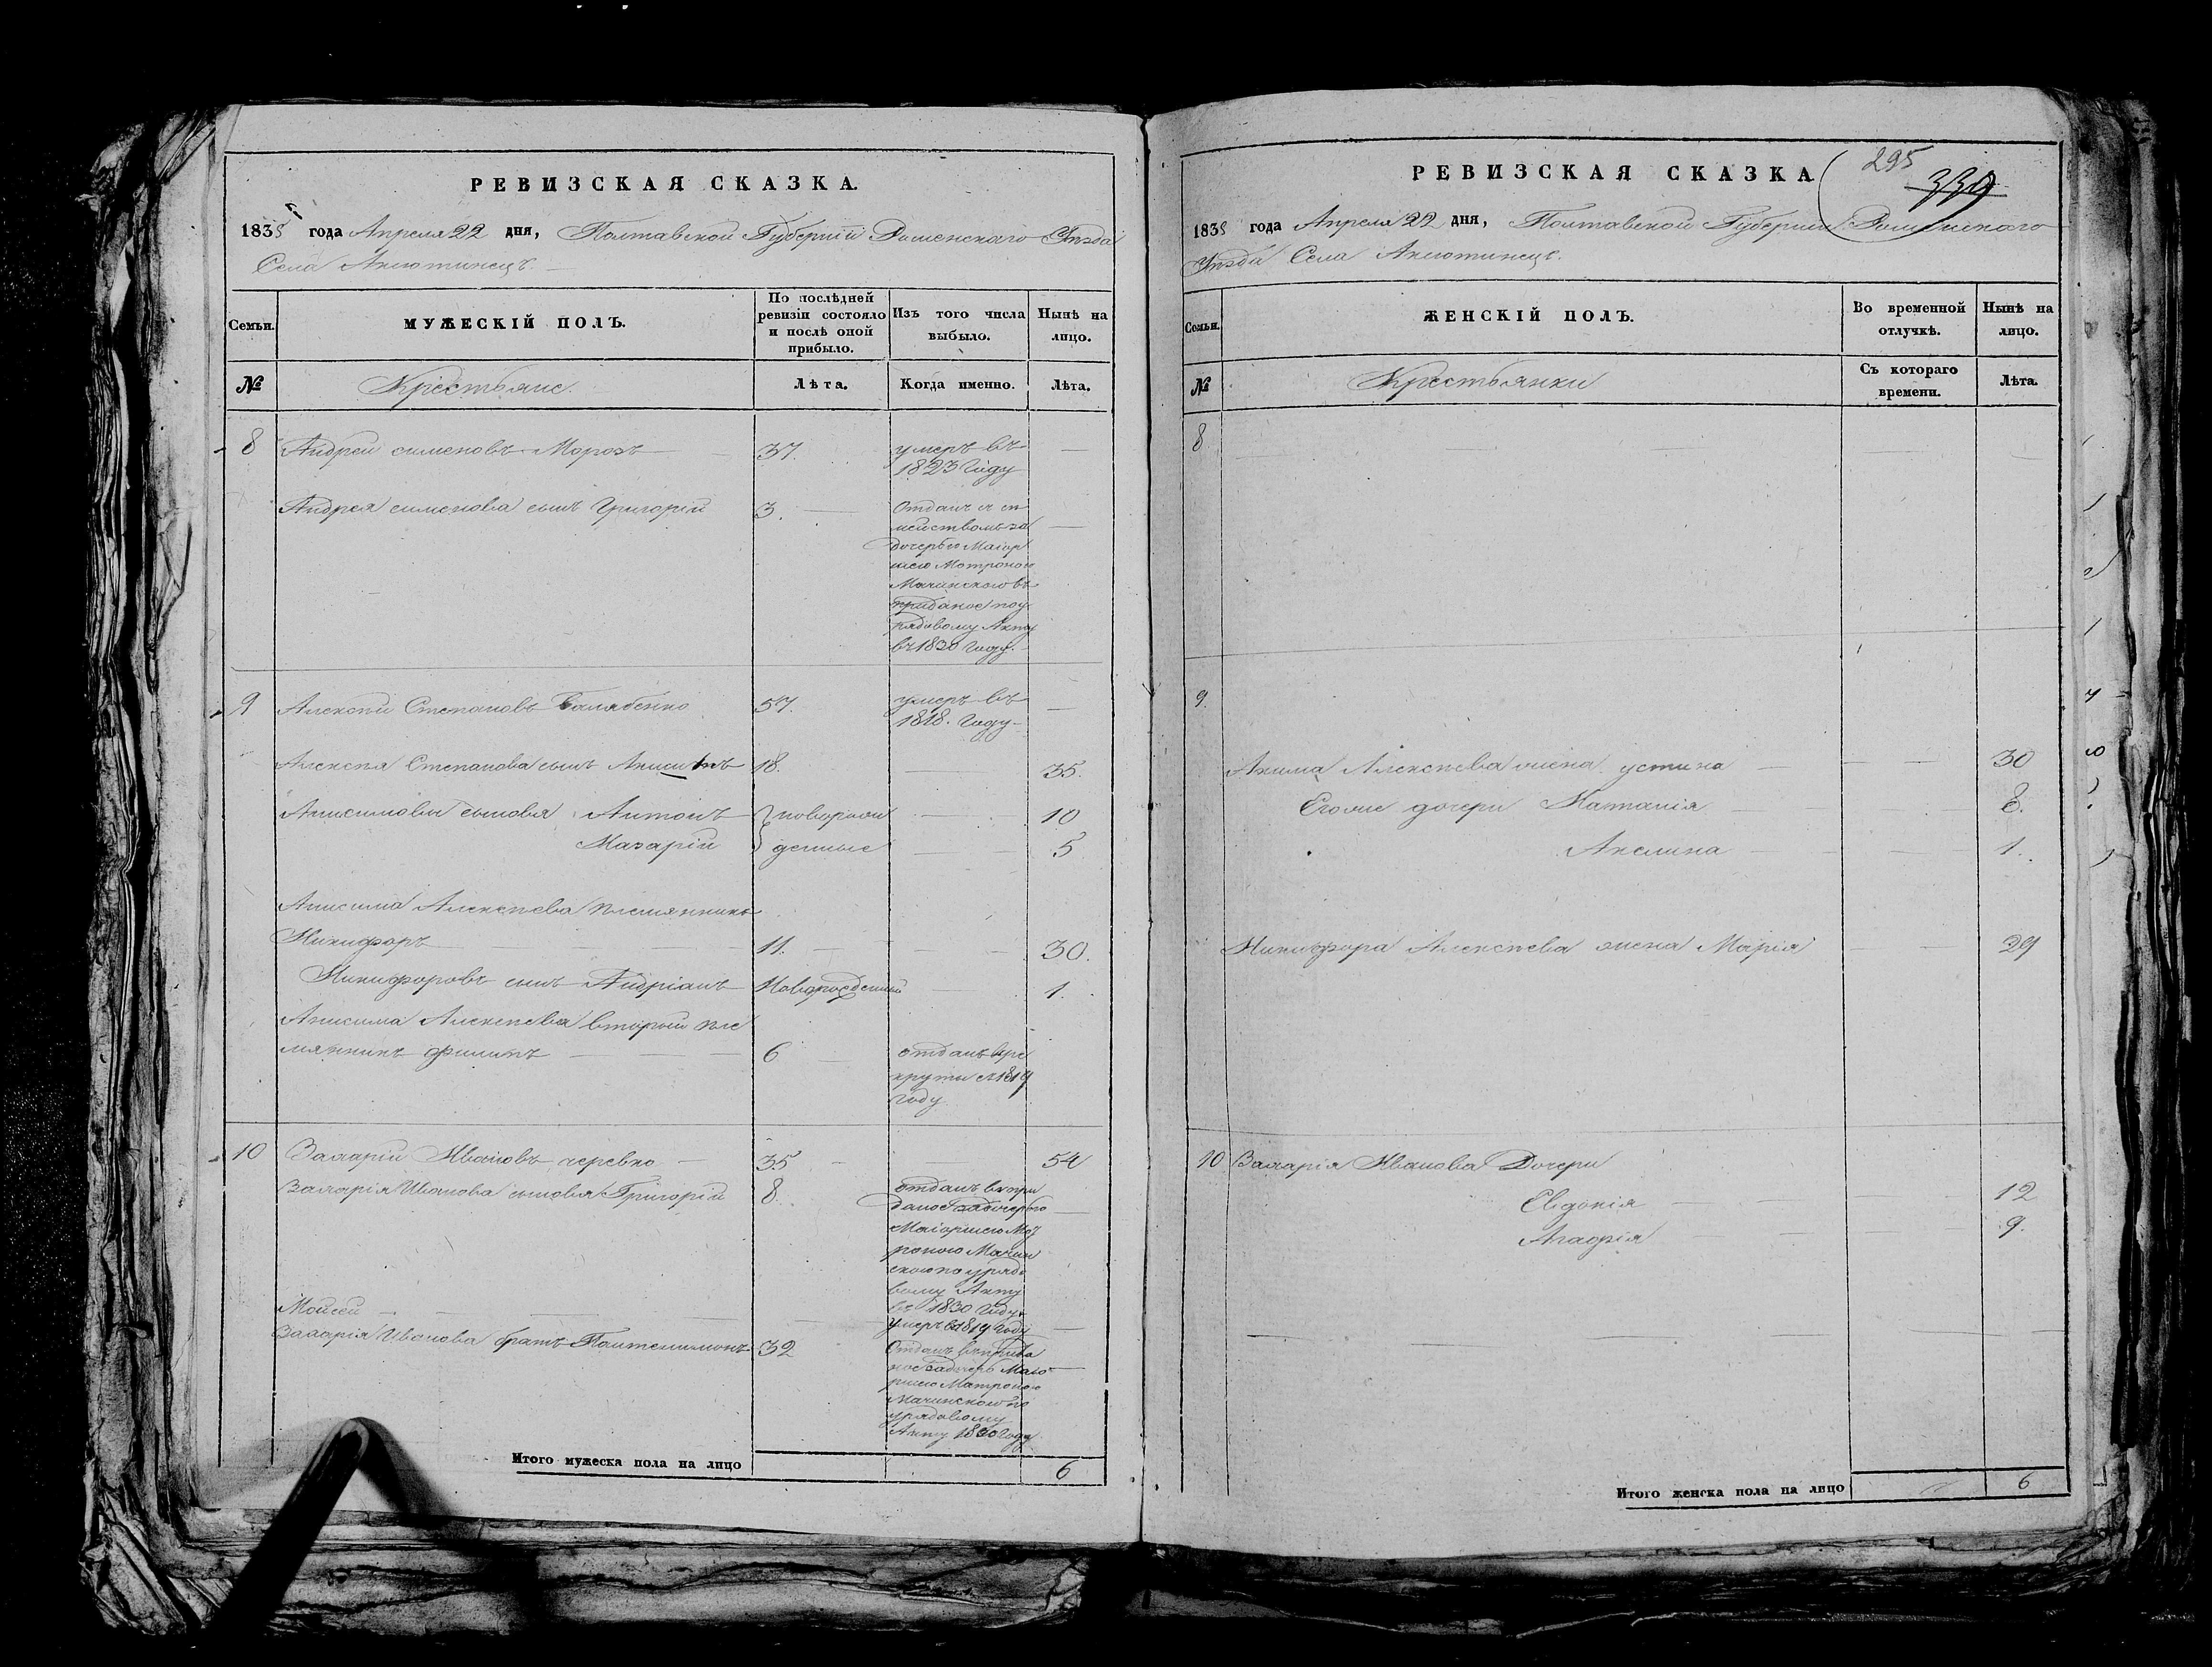 РЕВИЗСКАЯ СКАЗКА.
1835 года Апреля 22 дня, Полтавской Губернїи Роменскаго Уѣзда
Села Аксютинецъ.
Семьи.
МУЖЕСКІЙ ПОЛЪ.
По послѣдней ревизіи состояло и послѣ оной прибыло.
Изъ того числа выбыло.
Нынѣ на лицо.
№
Крестьяне.
Лѣта.
Когда именно.
Лѣта.
8 Андрей сименовъ Морозъ 37. умеръ въ
1823 Году
Андрея сименова сынъ Григорій 3. Отданъ с се
мействомъ за
дочерью Маіор
шею Мотроною
Мачинскою въ
приданое по у
рядовому Акту
въ 1830 Году.
9 Алексѣй Степановъ Балябенко 57. умеръ въ
1818. Году
Алексѣя Степанова сынъ Анисимъ 18. 35.
Анисимовы сыновья Антонъ новорож 10
Назарій денные 5
Анисима Алексѣева племянникъ
Никифоръ 11. 30.
Никифоровъ сынъ Андріанъ Новорожденный 1.
Анисима Алексѣева вторый пле
мянникъ Филипъ 6 отданъ в ре
круты с 1819
Году
10 Захарій Ивановъ черевко 35 54
Захарія Иванова сыновья Григорій 8. отданъ в при
даное за дочерью
Маіоршею Мот
роною Мачин
скою по урядо
вому Акту
въ 1830 Году
Моисей умеръ в 1819 Году
Захарія Иванова братъ Пантелимонъ 32 Отданъ въ прида
ное за дочерь Маіо
ршею Матроною
Мачинскою по
урядовому
Акту 1830 Году
Итого мужеска пола на лицо 6
РЕВИЗСКАЯ СКАЗКА
295
339
1835 года Апреля 22 дня, Полтавской Губерніи Роменскаго
Уѣзда Села Аксютинецъ.
Семьи.
ЖЕНСКІЙ ПОЛЪ.
Во временной отлучкѣ.
Нынѣ на лицо.
№
Крестьянки
Съ котораго времени.
Лѣта.
8.
9.
Анисима Алексѣева жена устина 30
Егоже дочери Наталія 8.
Акилина 1.
Никифора Алексѣева жена Марія 29
10 Захарія Иванова Дочери
Евдокія 12
Агафія 9.
Итого женска пола на лицо 6